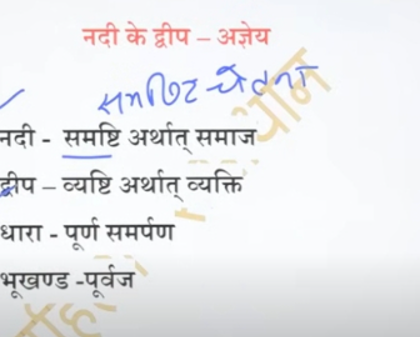 नदी के द्वीप – अज्ञेय
समष्टि चेतना
नदी - समष्टि अर्थात् समाज
द्वीप – व्यष्टि अर्थात् व्यक्ति
धारा - पूर्ण समर्पण
भूखण्ड -पूर्वज